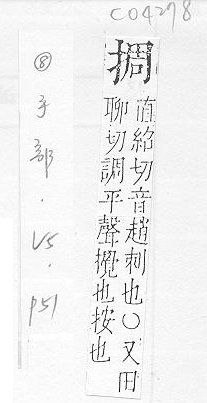 C04278
掆
直紹切音趙刺也○又田
聊切調平聲攪也按也
⑧手部.V5.P51